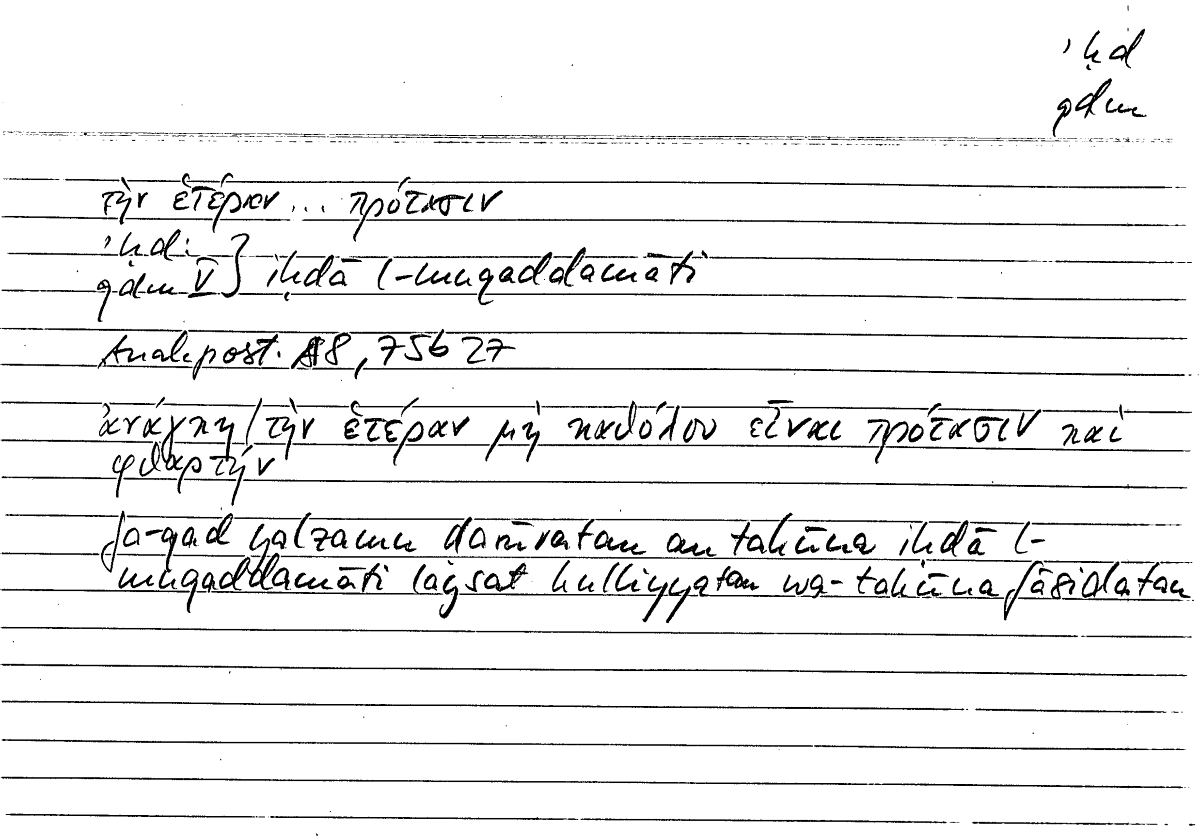 ʾḥd
qdm
τὴν ἑτέραν ... πρότασιν
ʾḥd:
qdm V } iḥdā l-muqaddamāti
Anal. post. A8, 75b27
ἀνάγκη / τὴν ἑτέραν μὴ καθόλου εἶναι πρότασιν καὶ
φθαρτήν
fa-qad yalzamu ḍarūratan an takūna iḥdā l-
muqaddamāti laysat kulliyyatan wa-takūna fāsidatan